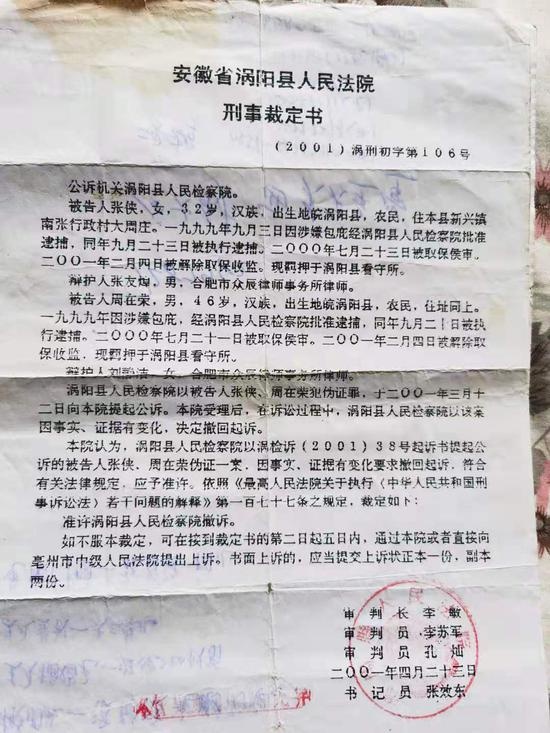 安徽省涡阳县人民法院
刑事裁定书
(2001)涡刑初字第106号
公诉机关涡阳县人民检察院。
被告人张侠，女，32岁，汉族，出生地皖涡阳县，农民，住本县新兴镇
南张行政村大周庄。一九九九年九月三日因涉嫌包庇经涡阳县人民检察院批准
逮捕，同年九月二十三日被执行逮捕。二〇〇〇年七月二十三日被取保侯审。
二〇〇一年二月四日被解除取保收监。现羁押于涡阳县看守所。
辩护人张友灿，男，合肥市众辰律师事务所律师。
被告人周在荣，男，46岁，汉族，出生地皖涡阳县，农民，住址同上。
一九九九年因涉嫌包庇，经涡阳县人民检察院批准逮捕，同年九月二十日被执
行逮捕。二〇〇〇年七月二十一日被取保侯审。二〇〇一年二月四日被解除取
保收监，现羁押于涡阳县看守所。
辩护人刘 洁，女，合肥市众辰律师事务所律师。
涡阳县人民检察院以被告人张侠、周在荣犯伪证罪，于二〇〇一年三月十
二日向本院提起公诉。本院受理后，在诉讼过程中，涡阳县人民检察院以该案
因事实、证据有变化，决定撤回起诉。
本院认为，涡阳县人民检察院以涡检诉(2001)38号起诉书提起公
诉的被告人张侠、周在荣伪证一案，因事实、证据有变化要求撤回起诉，符合
有关法律规定，应予准许。依照《最高人民法院关于执行〈中华人民共和国刑
事诉讼法〉若干问题的解释》第一百七十七条之规定，裁定如下：
准许涡阳县人民检察院撤诉。
如不服本裁定，可在接到裁定书的第二日起五日内，通过本院或者直接向
亳州市中级人民法院提出上诉。书面上诉的，应当提交上诉状正本一份，副本
两份。
审判长 李敏
审判员 李苏军
审判员 孔灿
二〇〇一年四月二十三日
书记员 张效东